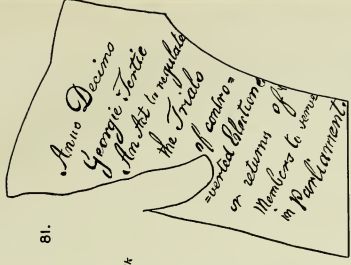 81.
Anno Decimo
Georgie Tertie
An Act to regulate
the Trials
of contro=
=verted Elections
or returns of
Members to serve
in Parliament.
k